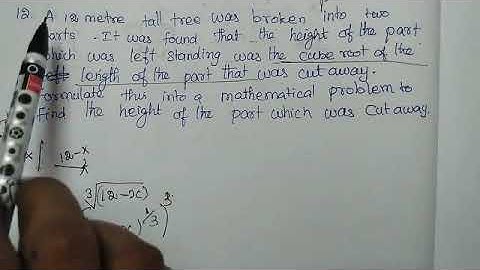 12. A 12 metre tall tree was broken into two
parts. It was found that the height of the part
which was left standing was the cube root of the
length of the part that was cut away.
Formulate this into a mathematical problem to
Find the height of the part which was cut away.
x 12-x
3√(12-x)
x)^1/3)^3